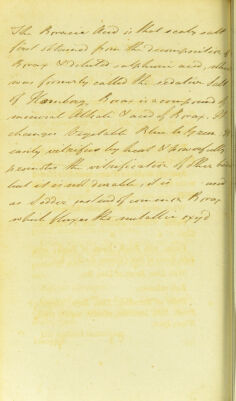 The Boracic Acid is that scaly salt
first obtained from the decomposition of
Borax & diluted sulphuric acid, which
was formerly called the sedative Salt
of Homberg, Borax is a compound of
mineral Alkali & acid of Borax. It
changes Vegetable Blue to Green. It
easily vitrifies by heat & powerfully
promotes the vitrification of other
but it is not durable, it is used
as Solder instead of common Borax
which fluxes the metallic oxyd